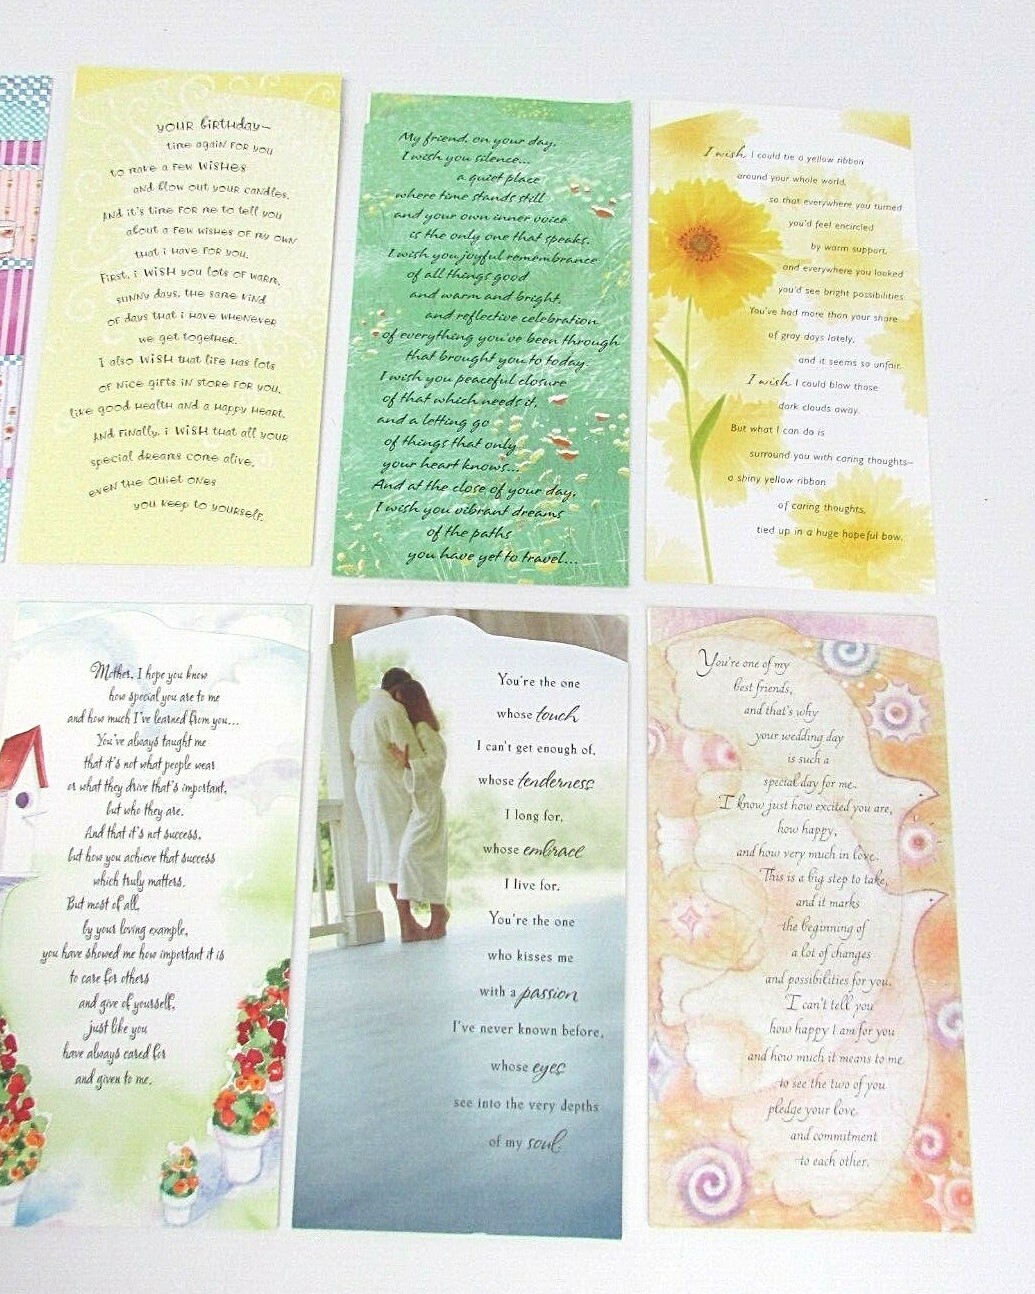 YOUR BIRTHDAY—
time again for you
to make a few WISHES
and blow out your candles.
And it's time for me to tell you
about a few wishes of my own
that i have for you.
First, i WISH you lots of warm,
sunny days, the same kind
of days that i have whenever
we get together.
I also WISH that life has lots
of nice gifts in store for you,
like good health and a happy heart.
And finally, i WISH that all your
special dreams come alive,
even the quiet ones
you keep to yourself.
My friend, on your day,
I wish you silence...
a quiet place
where time stands still
and your own inner voice
is the only one that speaks.
I wish you joyful remembrance
of all things good
and warm and bright,
and reflective celebration
of everything you've been through
that brought you to today.
I wish you peaceful closure
of that which needs it,
and a letting go
of things that only
your heart knows...
And at the close of your day,
I wish you vibrant dreams
of the paths
you have yet to travel...
I wish I could tie a yellow ribbon
around your whole world,
so that everywhere you turned
you'd feel encircled
by warm support,
and everywhere you looked
you'd see bright possibilities.
You've had more than your share
of gray days lately,
and it seems so unfair.
I wish I could blow those
dark clouds away.
But what I can do is
surround you with caring thoughts—
a shiny yellow ribbon
of caring thoughts,
tied up in a huge hopeful bow.
Mother, I hope you know
how special you are to me
and how much I've learned from you...
You've always taught me
that it's not what people wear
or what they drive that's important,
but who they are.
And that it's not success,
but how you achieve that success
which truly matters.
But most of all,
by your loving example,
you have showed me how important it is
to care for others
and give of yourself,
just like you
have always cared for
and given to me.
You're the one
whose touch
I can't get enough of,
whose tenderness
I long for,
whose embrace
I live for.
You're the one
who kisses me
with a passion
I've never known before,
whose eyes
see into the very depths
of my soul.
You're one of my
best friends,
and that's why
your wedding day
is such a
special day for me.
I know just how excited you are,
how happy,
and how very much in love.
This is a big step to take,
and it marks
the beginning of
a lot of changes
and possibilities for you.
I can't tell you
how happy I am for you
and how much it means to me
to see the two of you
pledge your love
and commitment
to each other.